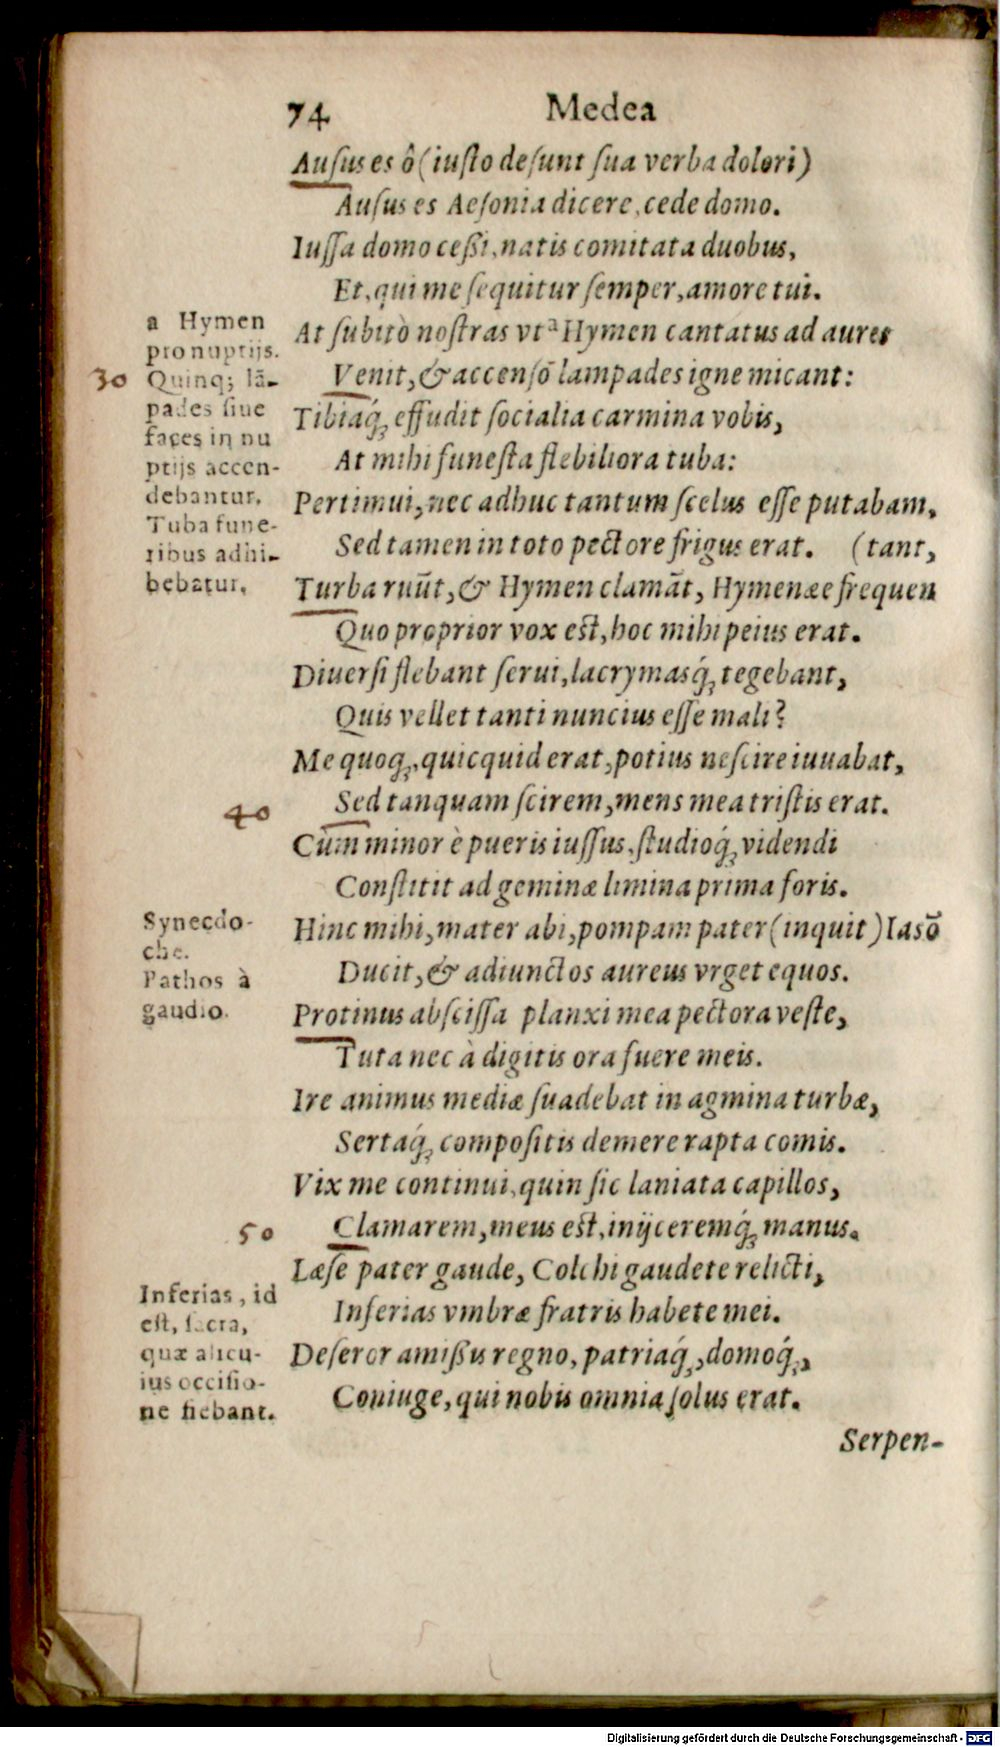 74 Medea
Auſus es ô (iuſto deſunt ſua verba dolori)
Auſus es Aeſonia dicere, cede domo.
Iuſſa domo ceßi, natis comitata duobus,
Et, qui me ſequitur ſemper, amore tui.
At ſubitò noſtras vt ᵃ Hymen cantatus ad aures
Venit, & accenſō lampades igne micant:
Tibiaq́ꝫ effudit ſocialia carmina vobis,
At mihi funeſta flebiliora tuba:
Pertimui, nec adhuc tantum ſcelus eſſe putabam,
Sed tamen in toto pectore frigus erat. (tant,
Turba ruūt, & Hymen clamāt, Hymenæe frequen
Quo proprior vox eſt, hoc mihi peius erat.
Diuerſi flebant ſerui, lacrymasq́ꝫ tegebant,
Quis vellet tanti nuncius eſſe mali?
Me quoqꝫ, quicquid erat, potius neſcire iuuabat,
Sed tanquam ſcirem, mens mea triſtis erat.
Cùm minor è pueris iuſſus, ſtudioq́ꝫ videndi
Conſtitit ad geminæ limina prima foris.
Hinc mihi, mater abi, pompam pater (inquit) Iasō
Ducit, & adiunctos aureus vrget equos.
Protinus abſciſſa planxi mea pectora veſte,
Tuta nec à digitis ora fuere meis.
Ire animus mediæ ſuadebat in agmina turbæ,
Sertaq́ꝫ compoſitis demere rapta comis.
Vix me continui, quin ſic laniata capillos,
Clamarem, meus eſt, inijceremq́ꝫ manus.
Læſe pater gaude, Colchi gaudete relicti,
Inferias vmbræ fratris habete mei.
Deſeror amißis regno, patriaq́ꝫ, domoq́ꝫ,
Coniuge, qui nobis omnia ſolus erat.
Serpen-
a Hymen
pro nuptijs.
30
Quinq; lā-
pades ſiue
faces in nu
ptijs accen-
debantur.
Tuba fune-
ribus adhi-
bebatur.
40
Synecdo-
che.
Pathos à
gaudio.
50
Inferias, id
eſt, ſacra,
quæ alicu-
ius occiſio-
ne fiebant.
Digitalisierung gefördert durch die Deutsche Forschungsgemeinschaft - DFG